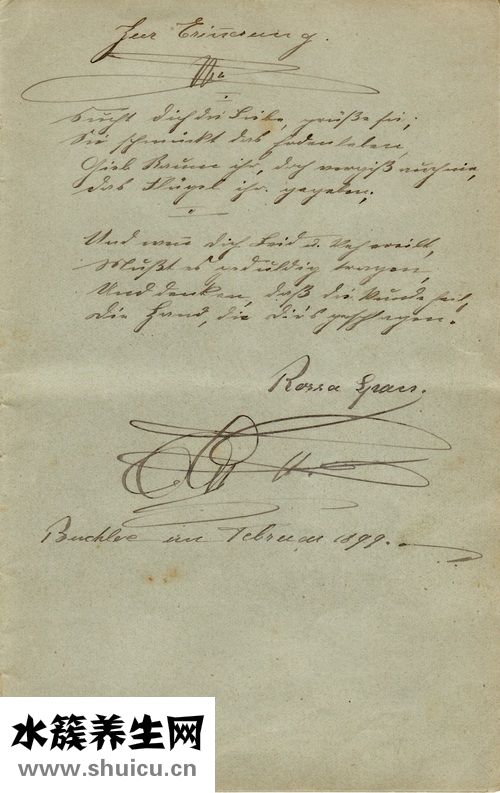 Zur Erinnerung.
Sucht dich die Liebe, grüße sie,
Sie schmückt das Erdenleben,
Gieb Raum ihr, doch vergiß auch nie,
das Flügel ihr gegeben,
Und wen̄ dich Leid u. Weh ereilt,
Mußt es geduldig tragen,
Und denken, daß die Wunde heilt,
Die Hand, die dir's geschlagen.
Rosa
Buchloe im Februar 1899.
水簇养生网
www.shuicu.cn